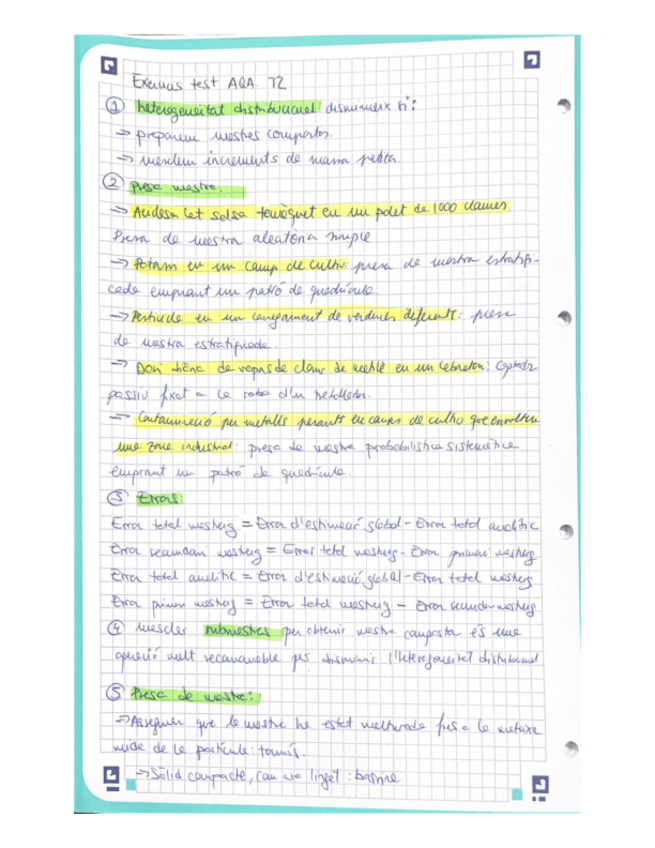 Exàmens test AQA. T2
① heterogeneïtat distribucional disminueix si:
→ preparem mostres compostes.
→ mesclem increments de massa petita
② Presa mostra.
→ Acidesa let salsa tomàquet en un palet de 1000 llaunes
Presa de mostra aleatòria simple
→ Potasi en un camp de cultiu: presa de mostra estratifi-
cada emprant un patró de quadrícula.
→ Pesticida en un carregament de verdures diferents: presa
de mostra estratificada.
→ de vapors de clorur de metilè en un laboratori: Captador
passiu fixat a la roba d'un treballador.
→ Contaminació per metalls pesants en camps de cultiu que envolten
una zona industrial: presa de mostra probabilística sistemàtica
emprant un patró de quadrícula.
③ Errors
Error total mostreig = Error d'estimació global - Error total analític
Error secundari mostreig = Error total mostreig - Error primari mostreig
Error total analític = Error d'estimació global - Error total mostreig
Error primari mostreig = Error total mostreig - Error secundari mostreig
④ Mesclar submostres per obtenir mostra composta és una
operació molt recomanable per disminuir l'heterogeneïtat distribucional
⑤ Presa de mostra:
→ Assegurar que la mostra ha estat molturada fins a la mateixa
mida de la partícula: tamís.
→ Sòlid compacte, com un lingot: barrina